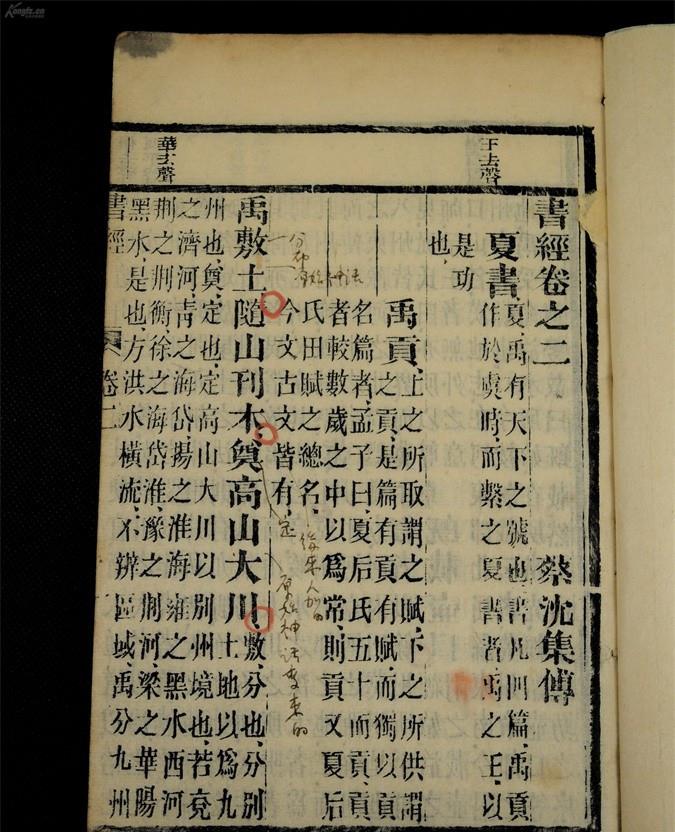 Kongfz.cn
王去聲
華去聲
書經卷之二 蔡沈集傳
夏書 夏禹有天下之號也書凡四篇禹貢
作於虞時而繫之夏書者禹之王以
是功
也
禹貢 上之所取謂之賦下之所供謂
之貢是篇有貢有賦而獨以貢
名篇者孟子曰夏后氏五十而貢貢
者較數歲之中以爲常則貢又夏后
氏田賦之總名
今文古文皆有
後來人加的
定
原始神話變來的
分布
禹敷土隨山刊木奠高山大川 敷分也分別
土地以爲九
州也奠定也定高山大川以別州境也若兗
之濟河青之海岱揚之淮海雍之黑水西河
荆之荆衡徐之海岱淮豫之荆河梁之華陽
黑水是也方洪水橫流不辨區域禹分九州
書經 卷二